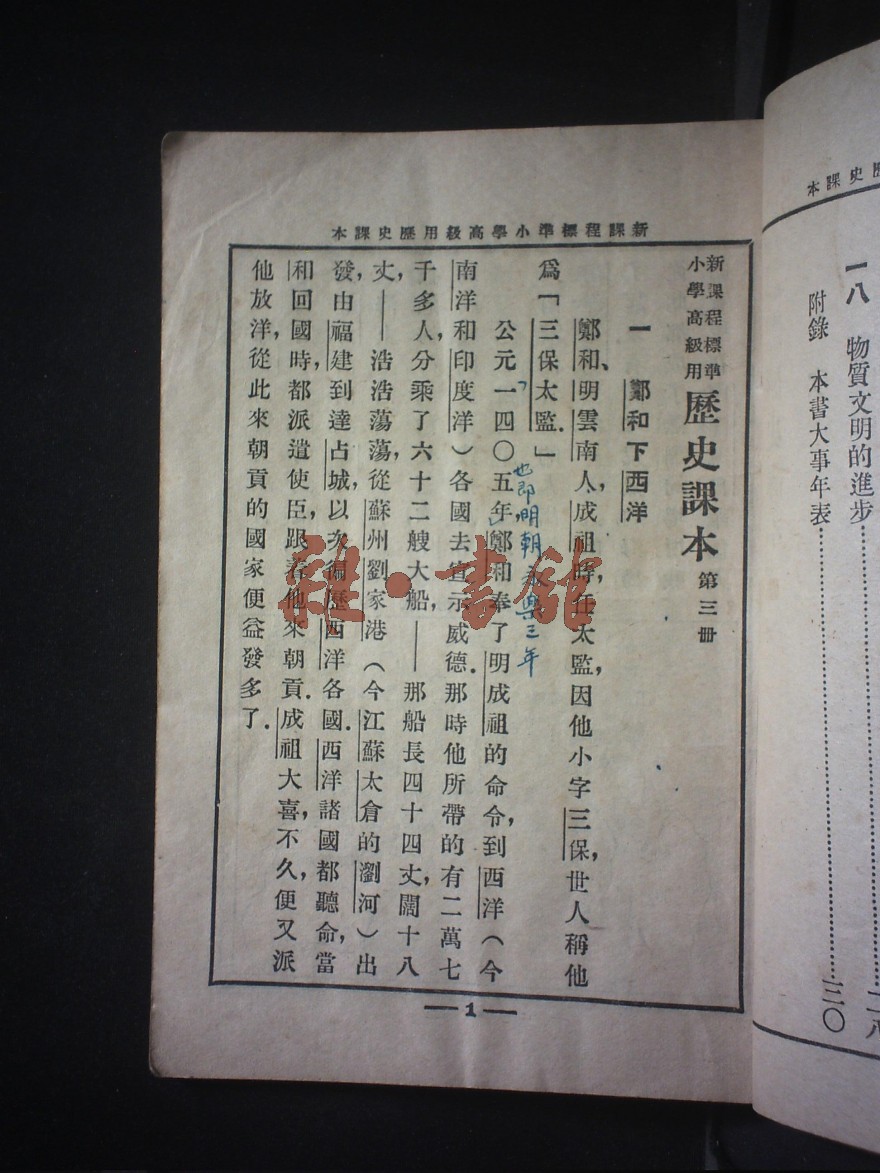 新課程標準小學高級用歷史課本
新課程標準
小學高級用
歷史課本 第三冊
一 鄭和下西洋
鄭和、明雲南人，成祖時，任太監，因他小字三保，世人稱他
爲「三保太監．」
公元一四〇五年，鄭和奉了明成祖的命令，到西洋（今
也即明朝永樂三年
南洋和印度洋）各國去宣示威德．那時他所帶的有二萬七
千多人，分乘了六十二艘大船，——那船長四十四丈，闊十八
丈，——浩浩蕩蕩，從蘇州劉家港（今江蘇太倉的瀏河）出
發，由福建到達占城，以次徧歷西洋各國．西洋諸國都聽命，當
和回國時，都派遣使臣，跟着他來朝貢．成祖大喜，不久，便又派
他放洋，從此來朝貢的國家便益發多了．
—1—
雜·書館
史課本
一八 物質文明的進步……二八
附錄 本書大事年表……三〇